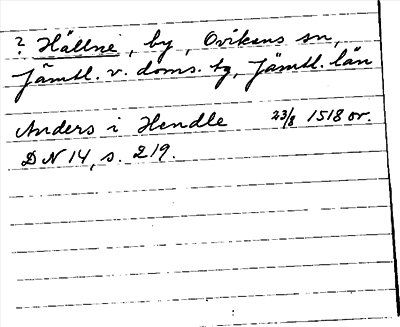 ? Hällne, by, Ovikens sn,
Jämtl. v. doms. tg, Jämtl. län
Anders i Hendle 23/8 1518 or.
DN 14, s. 219.